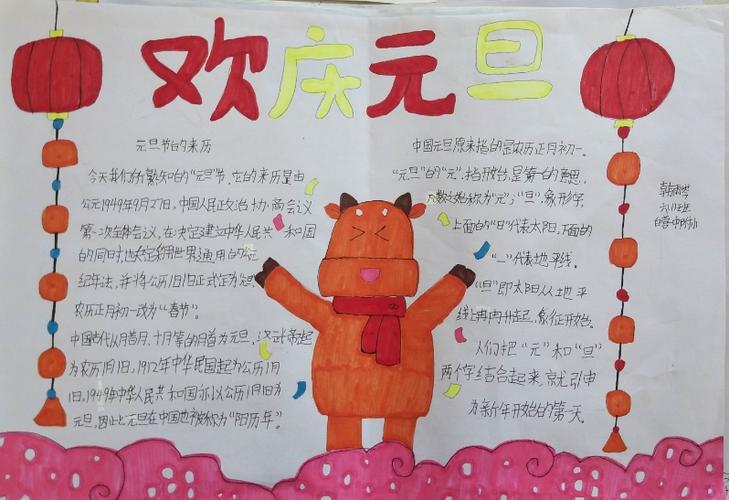 欢庆元旦
元旦节的来历
今天我们所熟知的“元旦”节，它的来历是由
公元1949年9月27日，中国人民政治协商会议
第一次全体会议，在决定建立中华人民共和国
的同时，也决定采用世界通用的公元
纪年法，并将公历1月1日正式定为元旦，
农历正月初一改为“春节”。
中国古代以月首月、十月等的月首为元旦，汉武帝起
为农历1月1日，1912年中华民国起为公历1月
1日，1949年中华人民共和国亦以公历1月1日为
元旦，因此元旦在中国也被称为“阳历年”。
中国元旦原来指的是农历正月初一。
“元旦”的“元”，指开始，是第一的意思，
凡数之始称为“元”；“旦”，象形字，
上面的“日”代表太阳，下面的
“一”代表地平线。
“旦”即太阳从地平
线上冉冉升起，象征开始。
人们把“元”和“旦”
两个字结合起来，就引申
为新年开始的第一天。